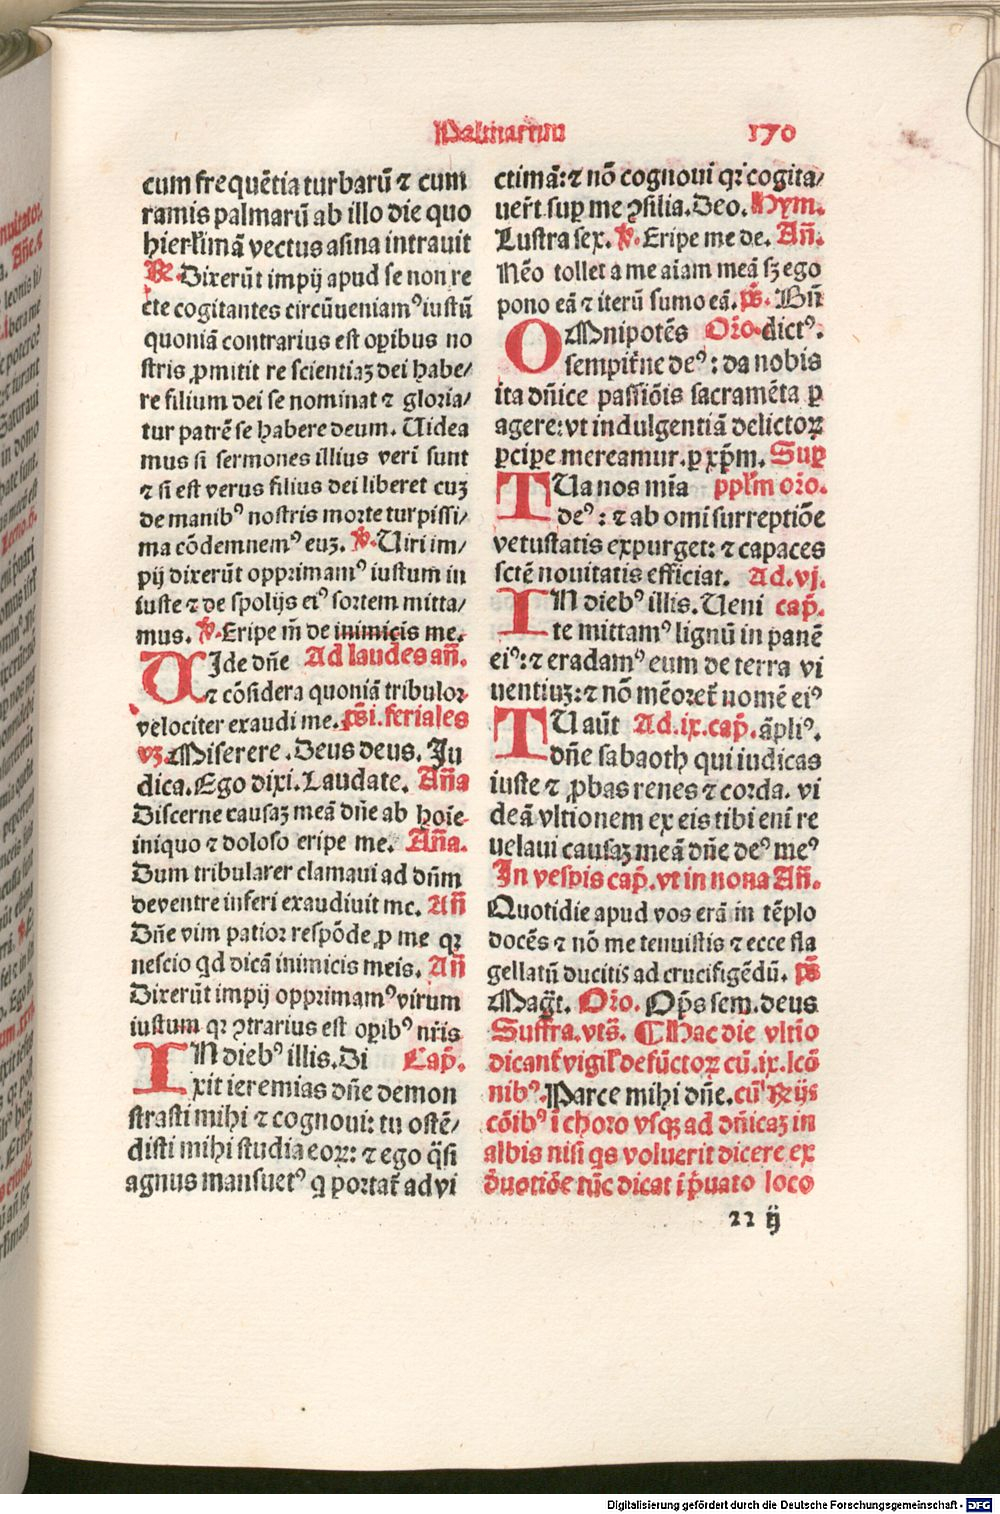 Palmarum 170
cum frequētia turbarū ⁊ cum
ramis palmarū ab illo die quo
hierl'imā vectus asina intrauit
℟. Dixerūt impij apud se non re
cte cogitantes circūueniamꝰ iustū
quoniā contrarius est oꝑibus no
stris ꝓmitit se scientiaꝫ dei habe/
re filium dei se nominat ⁊ gloria/
tur patrē se habere deum. Uidea
mus si sermones illius veri sunt
⁊ si est verus filius dei liberet euꝫ
de manibꝰ nostris morte turpissi/
ma cōdemnemꝰ euꝫ. ℣. Uiri im/
pij dixerūt opprimamꝰ iustum in
iuste ⁊ de spolijs eiꝰ sortem mitta/
mus. ℣. Eripe m̄ de inimicis me.
UIde dn̄e Ad laudes an̄.
⁊ cōsidera quoniā tribulor
velociter exaudi me. ps̄i. feriales
vꝫ. Miserere. Deus deus. Ju
dica. Ego dixi. Laudate. An̄a
Discerne causaꝫ meā dn̄e ab hoīe
iniquo ⁊ doloso eripe me. An̄a.
Dum tribularer clamaui ad dn̄m
de ventre inferi exaudiuit me. An̄
Dn̄e vim patior respōde ꝓ me qꝛ
nescio qd dicā inimicis meis. An̄
Dixerūt impij opprimamꝰ virum
iustum qꝛ ꝯtrarius est oꝑibꝰ nr̄is
IN diebꝰ illis. Di Cap̄.
xit ieremias dn̄e demon
strasti mihi ⁊ cognoui: tu ostē/
disti mihi studia eoꝝ: ⁊ ego q̄si
agnus mansuetꝰ q portat̄ ad vi
ctimā: ⁊ nō cognoui qꝛ cogita/
uer̄t suꝑ me ꝯsilia. Deo. Hym.
Lustra sex. ℣. Eripe me de. An̄.
Nēo tollet a me aīam meā sꝫ ego
pono eā ⁊ iterū sumo eā. ps̄. Bn̄
OMnipotēs Oro. dictꝰ.
sempit̄ne deꝰ: da nobis
ita dn̄ice passiōis sacramēta ꝑ
agere: vt indulgentiā delictoꝝ
ꝑciꝑe mereamur. ꝑ xp̄m. Suꝑ
TUa nos mia ppl'm oro.
deꝰ: ⁊ ab omi surreptiōe
vetustatis expurget: ⁊ capaces
sctē nouitatis efficiat. Ad. vj.
IN diebꝰ illis. Ueni cap̄.
te mittamꝰ lignū in panē
eiꝰ: ⁊ eradamꝰ eum de terra vi
uentiuꝫ: ⁊ nō mēoret̄ nomē eiꝰ
TU aūt Ad. ix. cap̄. āpliꝰ.
dn̄e sabaoth qui iudicas
iuste ⁊ ꝓbas renes ⁊ corda. vi
deā vltionem ex eis tibi enī re
uelaui causaꝫ meā dn̄e deꝰ meꝰ
In vesp̄is cap̄. vt in nona An̄.
Quotidie apud vos erā in tēplo
docēs ⁊ nō me tenuistis ⁊ ecce fla
gellatū ducitis ad crucifigēdū. ps̄
Mag̅t. Oro. Op̄s sem. deus
Suffra. vts̄. ¶ Hac die vltīo
dicant̄ vigil' defūctoꝝ cū. ix. lcō
nibꝰ. Parce mihi dn̄e. cū ℟ijs
cōibꝰ ī choro vsqꝫ ad dn̄icaꝫ in
albis nisi qs voluerit dicere ex
d̄uotiōe tūc dicat ī p̄uato loco
22 ij
Digitalisierung gefördert durch die Deutsche Forschungsgemeinschaft - DFG